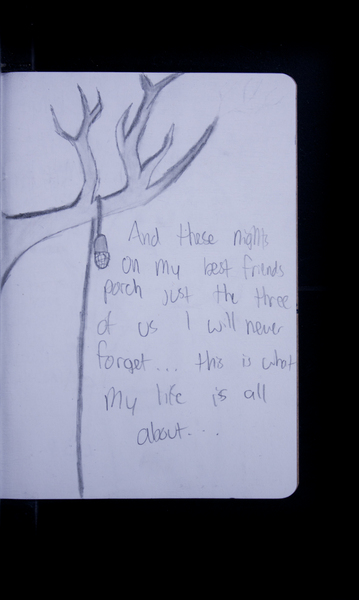 And these nights
on my best friends
porch just the three
of us I will never
forget... this is what
My life is all
about...